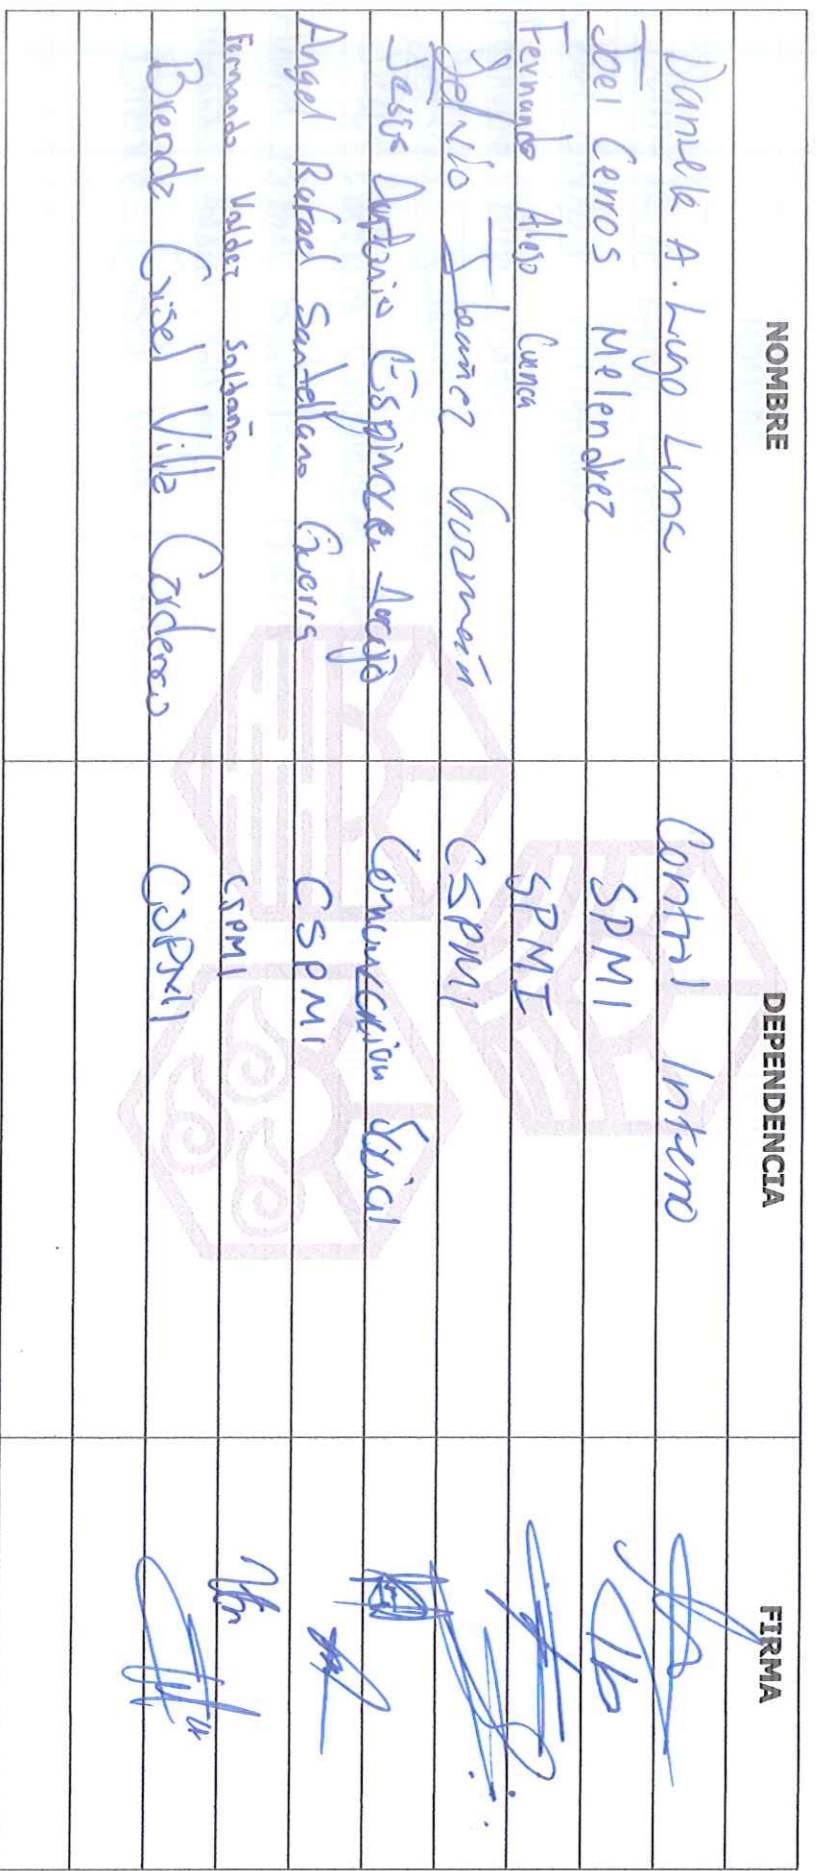 NOMBRE DEPENDENCIA FIRMA
Daniela A. Lugo Luna Control Interno
Joel Cerros Melendrez SPMI
Fernando Alejo Cuenca SPMI
Sergio Ibañez Guzmán CSPMI
Jesus Antonio Espinoza Araujo Comunicacion Social
Angel Rafael Santellano Guerra CSPMI
Fernando Valdez Saldaña CSPMI
Brenda Grisel Villa Cordero CSPMI